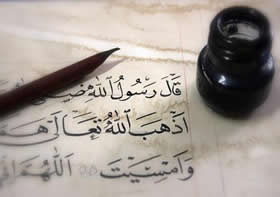 قَالَ رَسُولُ اللهِ
اَذْهَبَ اللهُ تَعَالَى
وَامْسَيْتَ اَللّٰهُمَّ